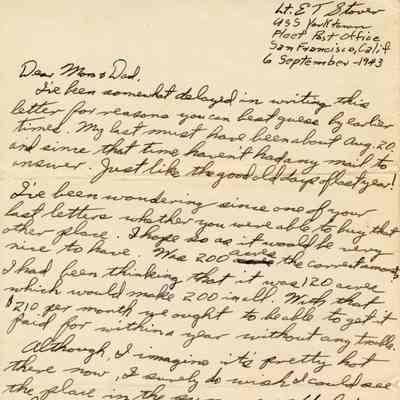 Lt. E T Stover
USS Yorktown
Fleet Post Office
San Francisco, Calif
6 September - 1943
Dear Mom & Dad,
I've been somewhat delayed in writing this
letter for reasons you can best guess by earlier
times. My last must have been about Aug. 20
and since that time haven't had any mail to
answer. Just like the good old days of last year!
I've been wondering since one of your
last letters whether you were able to buy that
other place. I hope so as it would be very
nice to have. Was 200 acres the correct amount
I had been thinking that it was 120 acres
which would make 200 in all. With that
$210 per month we ought to be able to get it
paid for within a year without any trouble.
Although, I imagine it's pretty hot
there now, I surely do wish I could see
the place in the